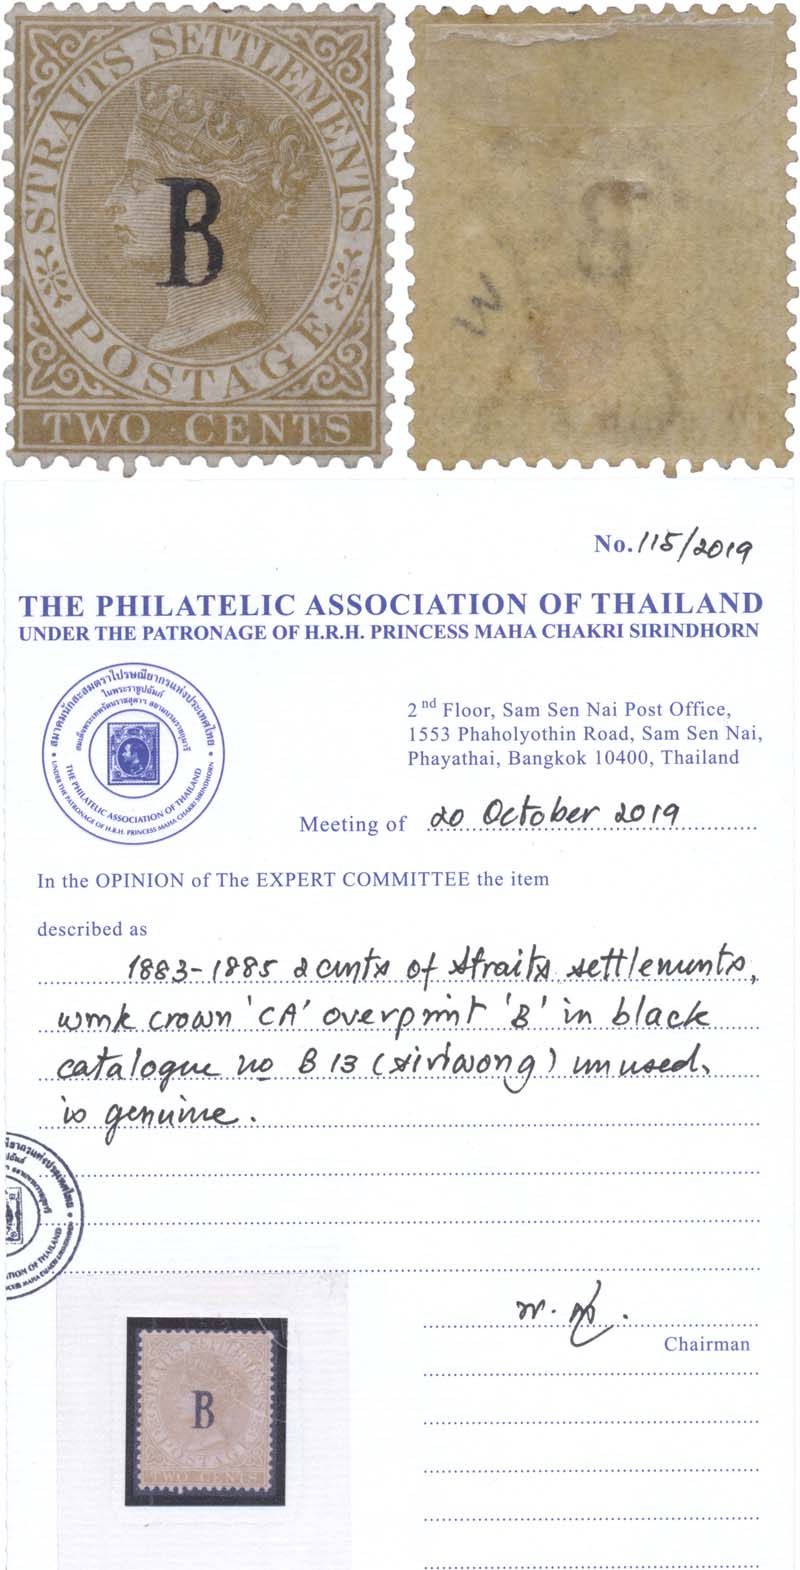 STRAITS SETTLEMENTS
B
POSTAGE
TWO CENTS
No. 115/2019
THE PHILATELIC ASSOCIATION OF THAILAND
UNDER THE PATRONAGE OF H.R.H. PRINCESS MAHA CHAKRI SIRINDHORN
สมาคมนักสะสมตราไปรษณียากรแห่งประเทศไทย
ในพระราชูปถัมภ์
สมเด็จพระเทพรัตนราชสุดาฯ สยามบรมราชกุมารี
THE PHILATELIC ASSOCIATION OF THAILAND
UNDER THE PATRONAGE OF H.R.H. PRINCESS MAHA CHAKRI SIRINDHORN
2nd Floor, Sam Sen Nai Post Office,
1553 Phaholyothin Road, Sam Sen Nai,
Phayathai, Bangkok 10400, Thailand
Meeting of 20 October 2019
In the OPINION of The EXPERT COMMITTEE the item
described as
1883-1885 2 cents of Straits settlements,
wmk crown 'CA' overprint 'B' in black
catalogue no B 13 (siriwong) unused,
is genuine.
Chairman
STRAITS SETTLEMENTS
B
POSTAGE
TWO CENTS